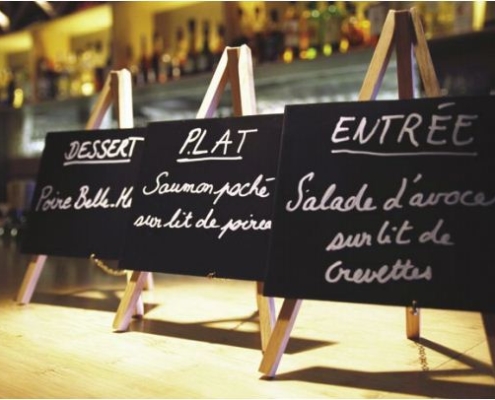 DESSERT
Poire Belle-H
PLAT
Saumon poché
sur lit de poirea
ENTRÉE
Salade d'avoca
sur lit de
Crevettes